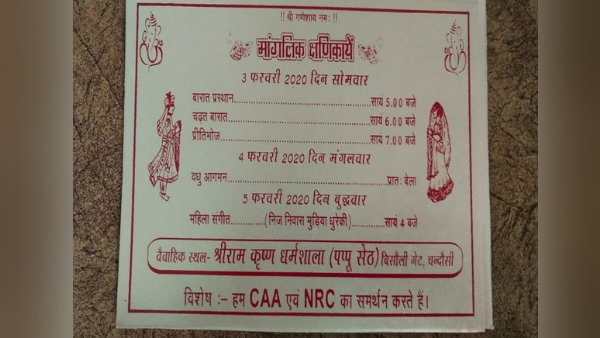 !! श्री गणेशाय नमः !!
मांगलिक क्षणिकायें
3 फरवरी 2020 दिन सोमवार
बारात प्रस्थान........................सायं 5.00 बजे
चढ़त बारात........................सायं 6.00 बजे
प्रीतिभोज........................सायं 7.00 बजे
4 फरवरी 2020 दिन मंगलवार
वधु आगमन........................प्रातः बेला
5 फरवरी 2020 दिन बुद्धवार
महिला संगीत..........(निज निवास मुड़िया धुरेकी)..........सायं 4 बजे
वैवाहिक स्थल- श्रीराम कृष्ण धर्मशाला (पप्पू सेठ) बिसौली गेट, चन्दौसी
विशेष :- हम CAA एवं NRC का समर्थन करते हैं।